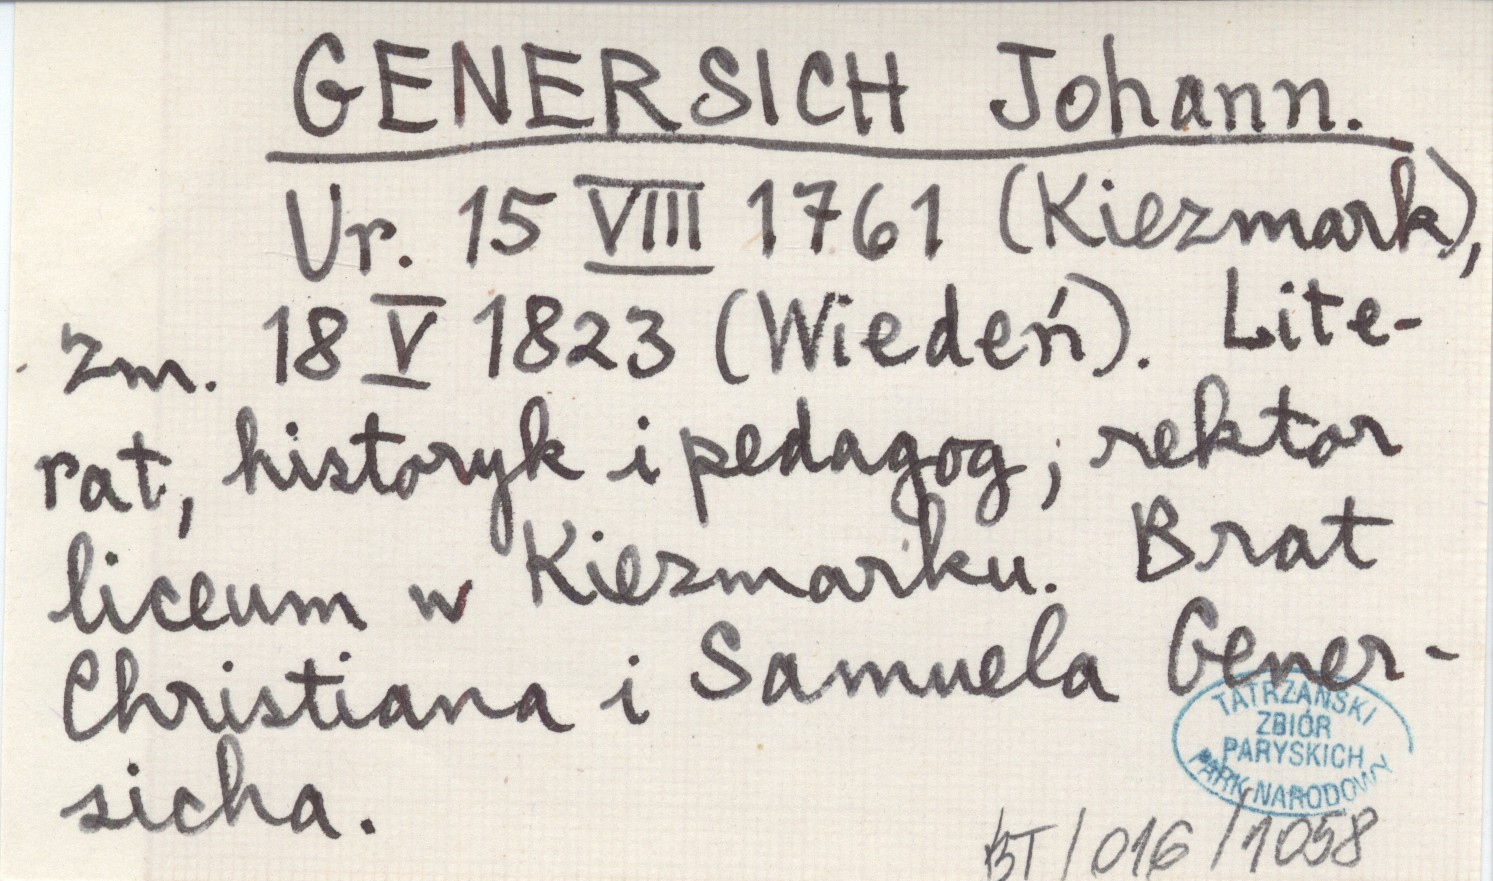 GENERSICH Johann.
Ur. 15 VIII 1761 (Kiezmark),
zm. 18 V 1823 (Wiedeń). Lite-
rat, historyk i pedagog; rektor
liceum w Kiezmarku. Brat
Christiana i Samuela Gener-
sicha.
TATRZAŃSKI
ZBIÓR
PARYSKICH
PARK NARODOWY
BT/016/1058